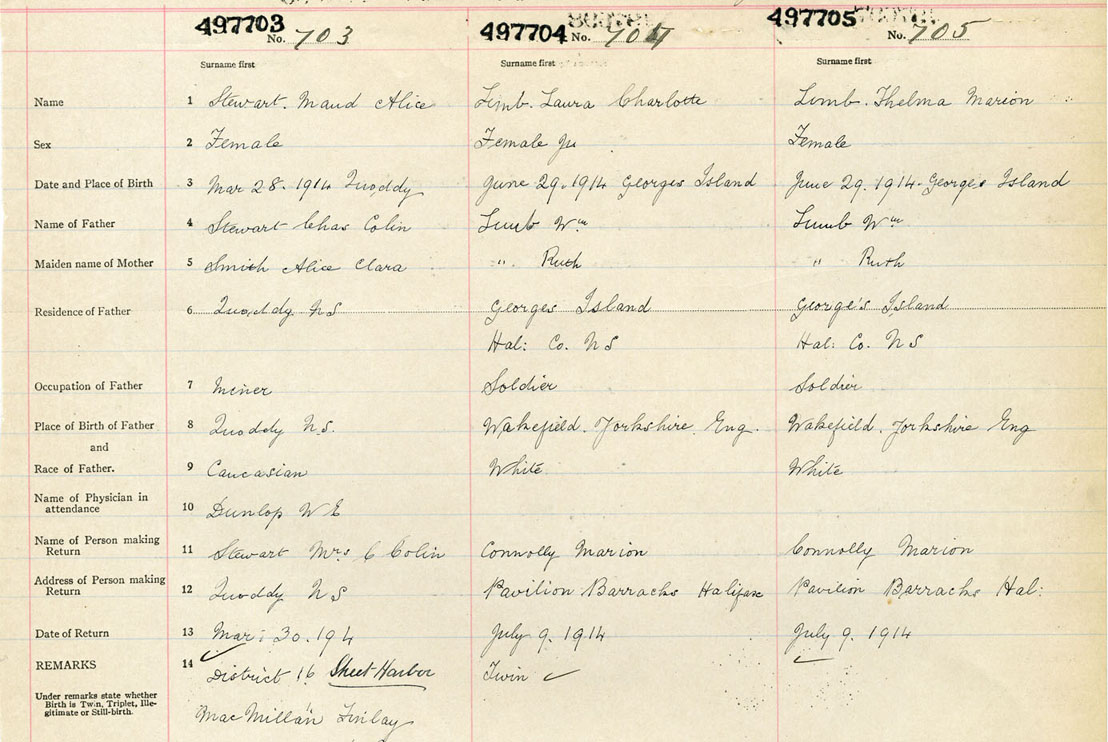 497703 No. 703 497704 No. 704 497705 No. 705
Surname first Surname first Surname first
Name 1 Stewart. Maud Alice Limb. Laura Charlotte Limb. Thelma Marion
Sex 2 Female Female Female
Date and Place of Birth 3 Mar 28. 1914 Quoddy June 29. 1914 Georges Island June 29. 1914. George's Island
Name of Father 4 Stewart Chas Colin Limb Wm Limb Wm
Maiden name of Mother 5 Smith Alice Clara " Ruth " Ruth
Residence of Father 6 Quoddy NS Georges Island George's Island
Hal: Co. NS Hal: Co. NS
Occupation of Father 7 Miner Soldier Soldier
Place of Birth of Father 8 Quoddy N.S. Wakefield. Yorkshire Eng. Wakefield. Yorkshire Eng
and
Race of Father. 9 Caucasian White White
Name of Physician in
attendance 10 Dunlop W E
Name of Person making
Return 11 Stewart Mrs C Colin Connolly Marion Connolly Marion
Address of Person making
Return 12 Quoddy NS Pavilion Barracks Halifax Pavilion Barracks Hal:
Date of Return 13 Mar: 30. 194 July 9. 1914 July 9. 1914
REMARKS 14 District 16 Sheet Harbor Twin
Under remarks state whether
Birth is Twin, Triplet, Ille-
gitimate or Still-birth.
MacMillan Finlay